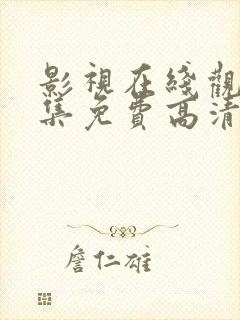 影視在綫觀
集免費高清
詹仁雄